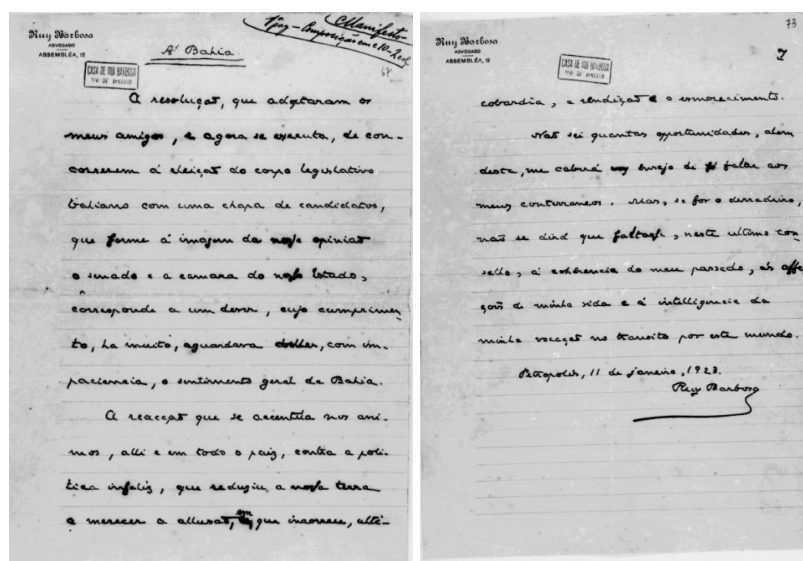 Ruy Barbosa
ADVOGADO
ASSEMBLÉA, 12
Manifesto
1ª pag – Composição em c. 10 – 2 col.
Á Bahia.
CASA DE RUI BARBOSA
RIO DE JANEIRO
67
A resolução, que adoptaram os
meus amigos, e agora se executa, de con-
correrem á eleição do corpo legislativo
bahiano com uma chapa de candidatos,
que forme á imagem da nossa opinião
o senado e a camara do nosso Estado,
corresponde a um dever, cujo cumprimen-
to, ha muito, aguardava delles, com im-
paciencia, o sentimento geral da Bahia.
A reacção que se accentúa nos ani-
mos, alli e em todo o paiz, contra a poli-
tica infeliz, que reduziu a nossa terra
a merecer a allusão, em que incorreu, ulti-
73
Ruy Barbosa
ADVOGADO
ASSEMBLÉA, 12
7
CASA DE RUI BARBOSA
RIO DE JANEIRO
cobardia, a rendição e o esmorecimento.
Não sei quantas opportunidades, alem
desta, me caberá ensejo de falar aos
meus conterraneos. Mas, se for o derradeiro,
não se dirá que faltasse, neste ultimo con
selho, á coherencia do meu passado, ás affei
ções de minha vida e á intelligencia da
minha vocação no transito por este mundo.
Petropolis, 11 de janeiro, 1923.
Ruy Barbosa